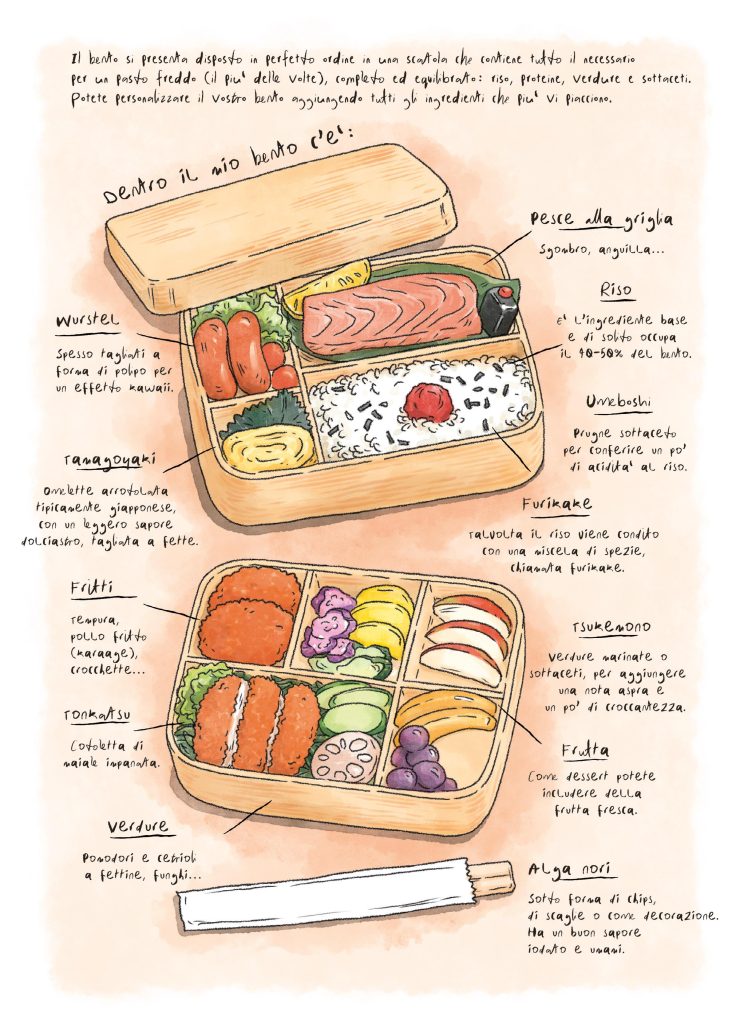 Il bento si presenta disposto in perfetto ordine in una scatola che contiene tutto il necessario
per un pasto freddo (il piu' delle volte), completo ed equilibrato: riso, proteine, verdure e sottaceti.
Potete personalizzare il vostro bento aggiungendo tutti gli ingredienti che piu' vi piacciono.
Dentro il mio bento c'e':
Pesce alla griglia
Sgombro, anguilla...
Riso
E' l'ingrediente base
e di solito occupa
il 40-50% del bento.
Wurstel
Spesso tagliati a
forma di polipo per
un effetto kawaii.
Umeboshi
Prugne sottaceto
per conferire un po'
di acidita' al riso.
Tamagoyaki
Omelette arrotolata
tipicamente giapponese,
con un leggero sapore
dolciastro, tagliata a fette.
Furikake
Talvolta il riso viene condito
con una miscela di spezie,
chiamata furikake.
Fritti
Tempura,
pollo fritto
(karaage),
crocchette...
Tsukemono
Verdure marinate o
sottaceti, per aggiungere
una nota aspra e
un po' di croccantezza.
Tonkatsu
Cotoletta di
maiale impanata.
Frutta
Come dessert potete
includere della
frutta fresca.
Verdure
Pomodori e cetrioli
a fettine, funghi...
Alga nori
Sotto forma di chips,
di scaglie o come decorazione.
Ha un buon sapore
iodato e umami.